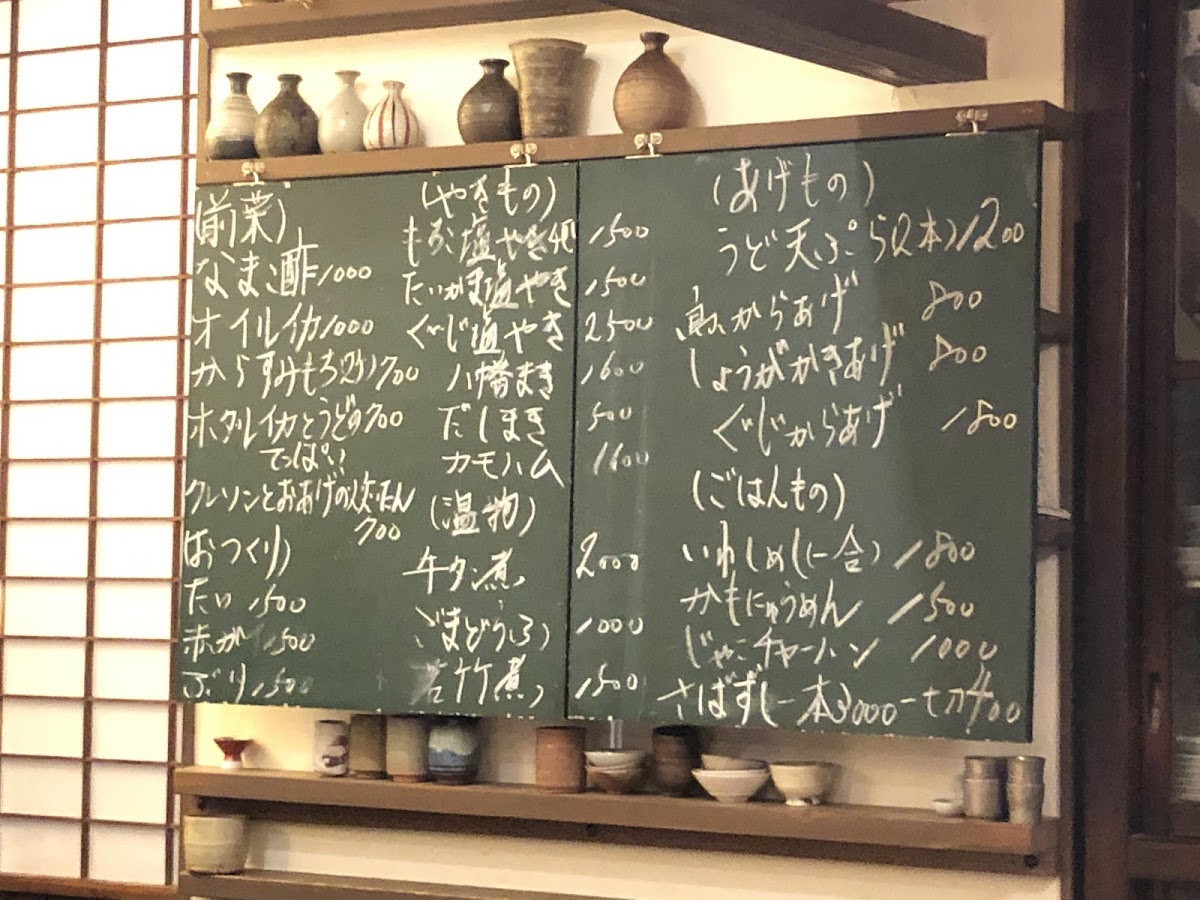 (前菜)
なまこ酢 1000
オイルイカ 1000
からすみもち(2ケ) 700
ホタルイカとうどの 700
てっぱい
クレソンとおあげの炊たん
700
(おつくり)
たい 1500
赤がい 1500
ぶり 1500
(やきもの)
もろこ塩やき4匹 1500
たいかま塩やき 1500
ぐじ塩やき 2500
八幡まき 1600
だしまき 500
カモハム 1600
(温物)
牛タン煮 2000
ごまどうふ 1000
若竹煮 1500
(あげもの)
うど天ぷら(2本) 1200
鳥からあげ 800
しょうがかきあげ 800
ぐじからあげ 1800
(ごはんもの)
いわしめし(一合) 1800
かもにゅうめん 1500
じゃこチャーハン 1000
さばずし一本3000一切400